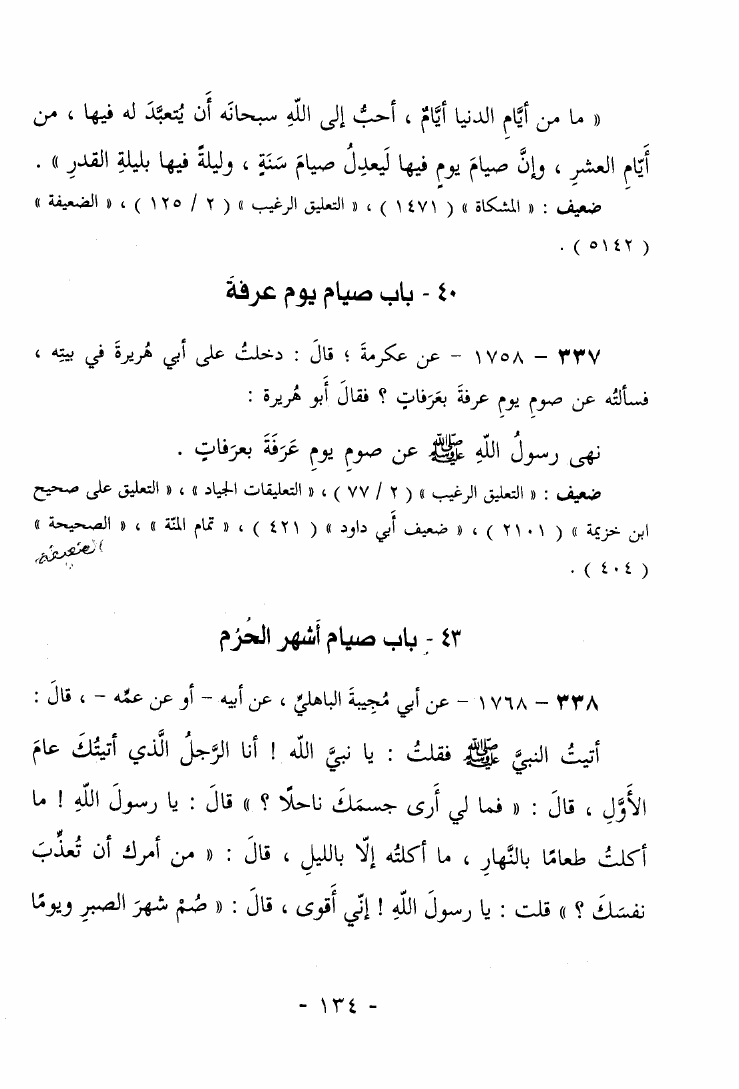 « ما من أيَّامِ الدنيا أيَّامٌ ، أحبُّ إلى اللّهِ سبحانَه أَن يُتعبَّدَ له فيها ، من
أَيّامِ العشرِ ، وإنَّ صيامَ يومٍ فيها لَيعدِلُ صيامَ سَنَةٍ ، وليلةً فيها بليلةِ القدرِ » .
ضعيف : « المشكاة » ( ١٤٧١ ) ، « التعليق الرغيب » ( ٢ / ١٢٥ ) ، « الضعيفة »
( ٥١٤٢ ) .
٤٠ - باب صيام يوم عرفةَ
٣٣٧ – ١٧٥٨ – عن عكرمةَ ؛ قالَ : دخلتُ على أبي هُريرةَ في بيتِه ،
فسألتُه عن صومِ يومِ عرفةَ بعَرَفاتٍ ؟ فقالَ أَبو هُريرة :
نهى رسولُ اللّهِ ﷺ عن صومِ يومِ عَرَفَةَ بعرَفاتٍ .
ضعيف : « التعليق الرغيب » ( ٢ / ٧٧ ) ، « التعليقات الجياد » ، « التعليق على صحيح
ابن خزيمة » ( ٢١٠١ ) ، « ضعيف أبي داود » ( ٤٢١ ) ، « تمام المنّة » ، « الصحيحة »
الضعيفة
( ٤٠٤ ) .
٤٣ - باب صيام أَشهر الحُرُم
٣٣٨ – ١٧٦٨ – عن أبي مُجِيبةَ الباهليِّ ، عن أبيه – أو عن عمِّه – ، قالَ :
أتيتُ النبيَّ ﷺ فقلتُ : يا نبيَّ الله ! أنا الرَّجلُ الَّذي أتيتُكَ عامَ
الأَوَّلِ ، قالَ : « فما لي أَرى جسمَكَ ناحلًا ؟ » قالَ : يا رسولَ اللّهِ ! ما
أكلتُ طعامًا بالنَّهارِ ، ما أكلتُه إلّا بالليلِ ، قالَ : « من أمرك أن تُعذِّبَ
نفسَكَ ؟ » قلت : يا رسولَ اللّهِ ! إنّي أَقوى ، قالَ : « صُمْ شهرَ الصبرِ ويومًا
- ١٣٤ -